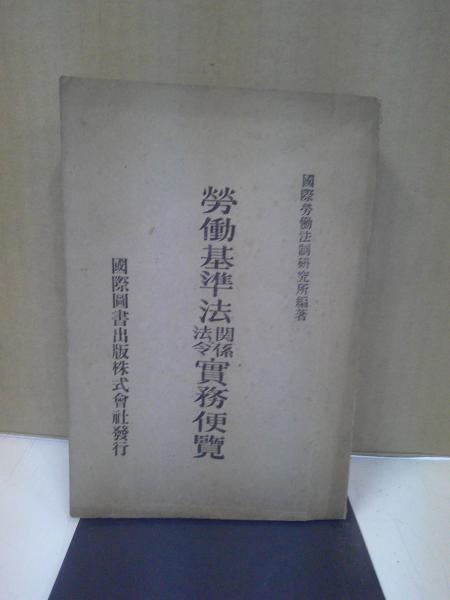 國際勞働法制研究所編著
勞働基準法関係法令實務便覽
國際圖書出版株式會社發行